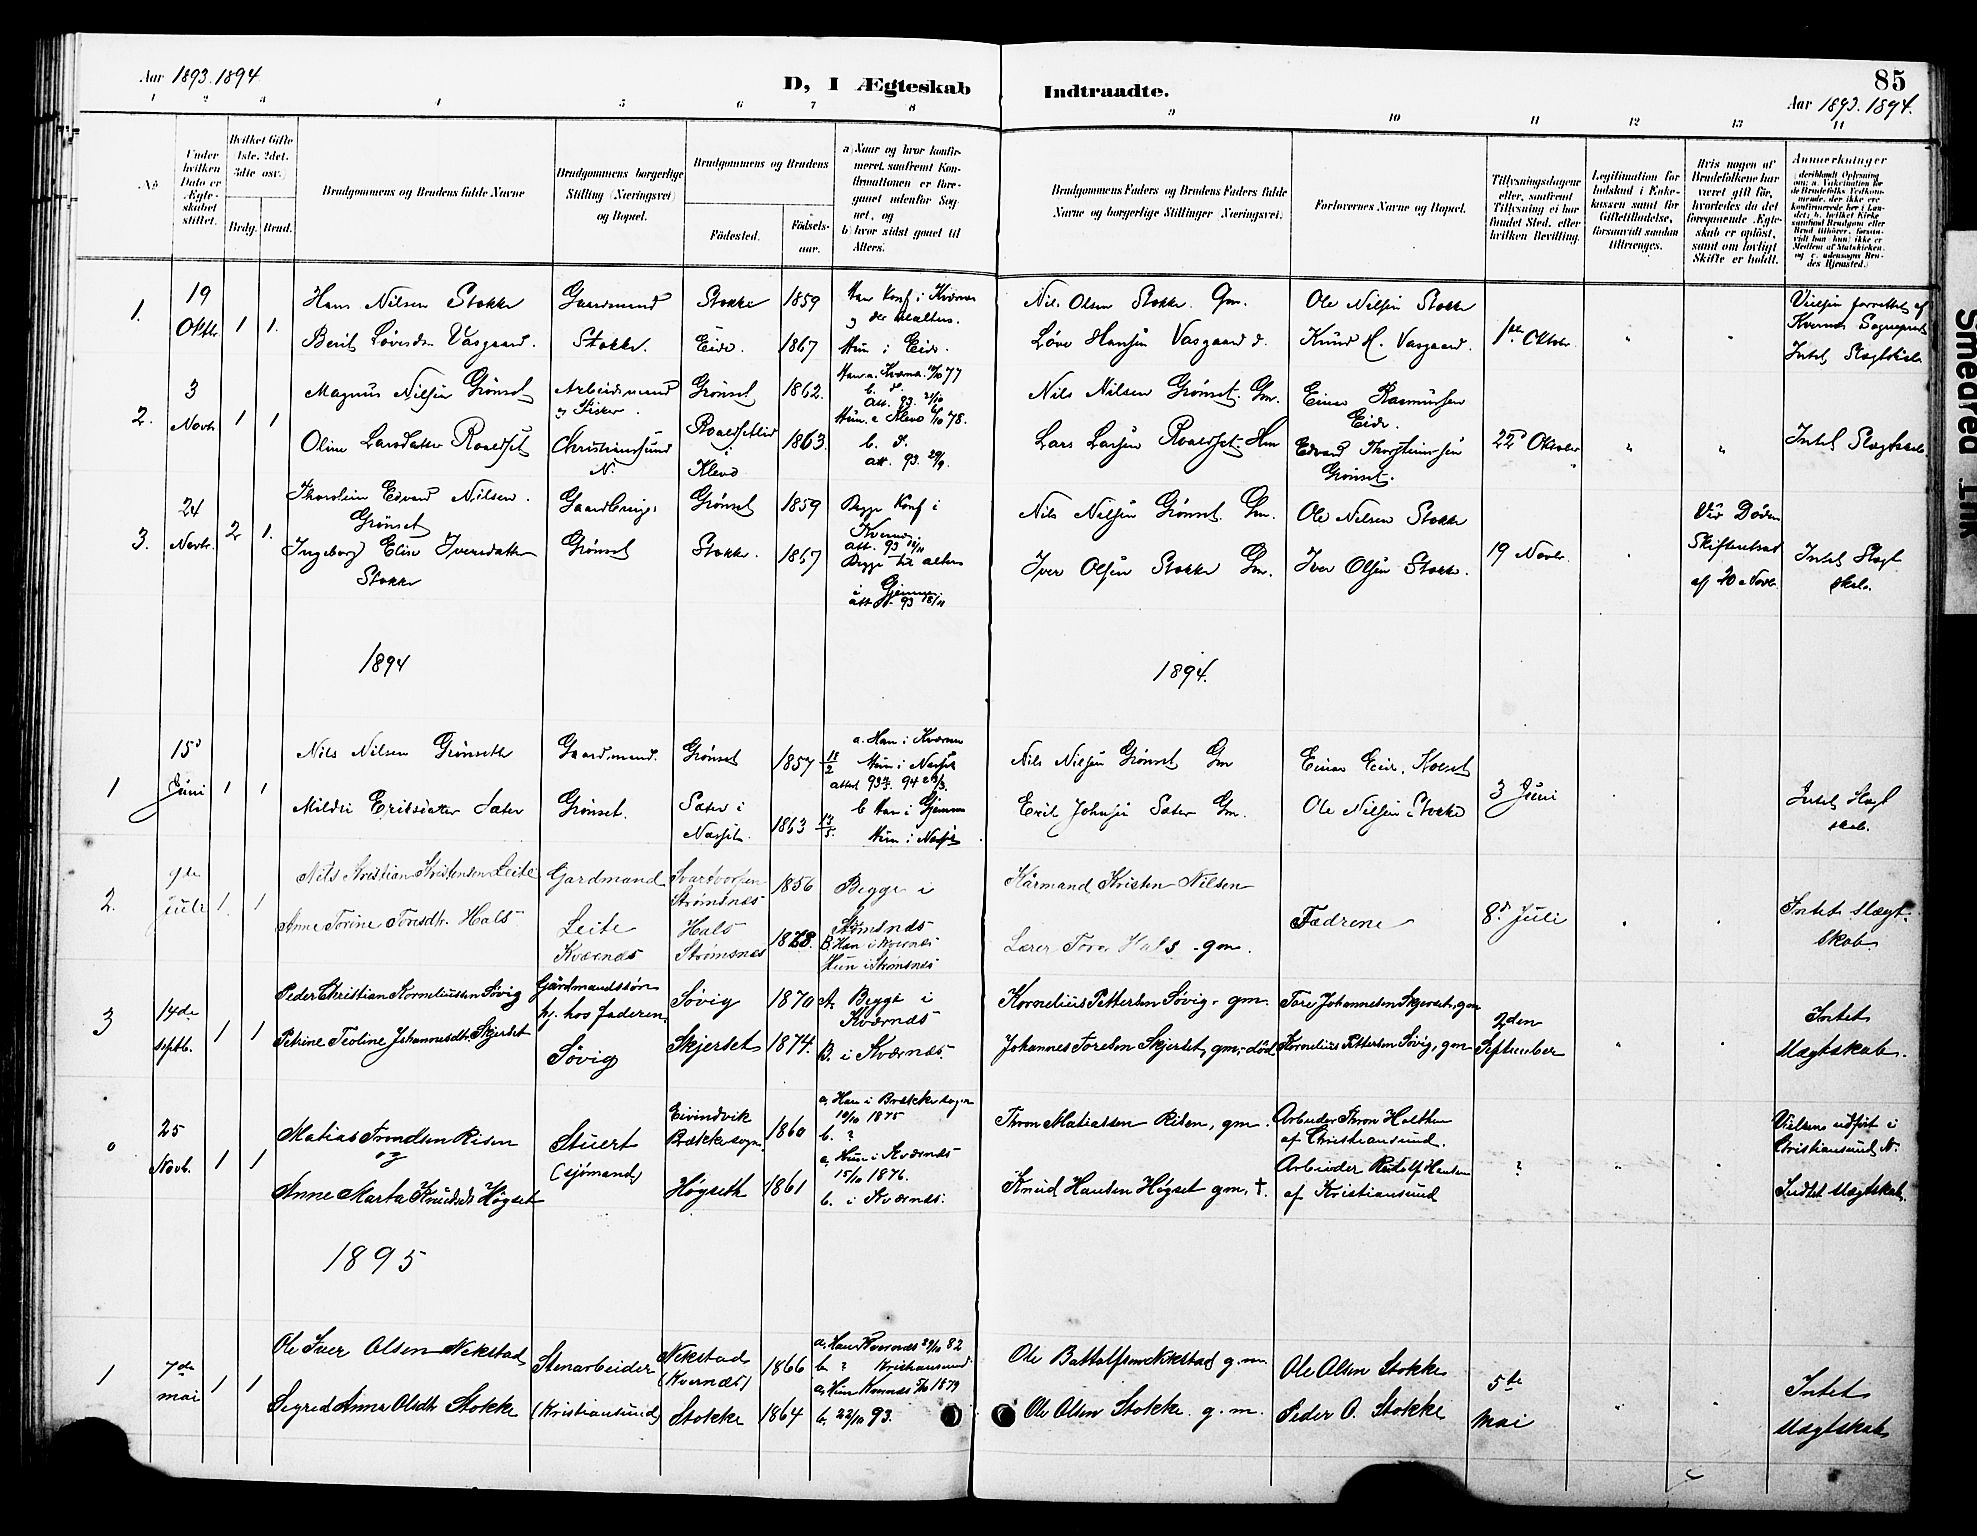 Aar 1893.1894
D, I Ægteskab Indtraadte.
85
Aar 1893.1894.
1 2 3 4 5 6 7 8 9 10 11 12 13 14
No
Under
hvilken
Dato er
Ægte-
skabet
stiftet.
Hvilket Gifte
1ste, 2det,
3die osv.)
Brdg. Brud.
Brudgommens og Brudens fulde Navne
Brudgommens borgerlige
Stilling (Næringsvei)
og Bopæl.
Brudgommens og Brudens
Fødested.
Fødsels-
aar.
a) Naar og hvor konfir-
meret, saafremt Kon-
firmationen er fore-
gaaet udenfor Sog-
net, og
b) hvor sidst gaaet til
Alters.
Brudgommens Faders og Brudens Faders fulde
Navne og borgerlige Stillinger (Næringsvei)
Forlovernes Navne og Bopæl.
Tillysningsdagene
eller, saafremt
Tillysning ei har
fundet Sted, efter
hvilken Bevilling.
Legitimation for
Indskud i Enke-
kassen samt for
Giftetilladelse,
forsaavidt saadan
tiltrænges.
Hvis nogen af
Brudefolkene har
været gift før,
hvorledes da det
foregaaende Ægte-
skab er opløst,
samt om lovligt
Skifte er holdt.
Anmærkninger
1.
19
Oktb.
1 1.
Hans Nilsen Stokke
Berit Løvesdtr Vasgaard.
Gaardmand
Stokke.
Stokke 1859
Eide. 1867
Han Konf i Kværnes
og der tilalters.
Hun i Eide.
Nils Olsen Stokke. Gm.
Løve Hansen Vasgaard d.
Ole Nilsen Stokke
Knud H. Vasgaard.
1ste Oktober
Vielsen forrettet af
Kvernes Sogneprest
Intet Slægtskab
2.
3
Novbr
1 1
Magnus Nilsen Grønset
Oline Larsdatter Roaldset
Arbeidsmand
og Fisker.
Christianssund
N.
Grønset 1862.
Roaldsetlid
i Klevo 1863.
Nils Nilsen Grønset. Gm.
Lars Larsen Roaldset. Hm
Einar Rasmussen
Eide.
Edvard Thorsteinsen
Grønset.
22d Oktober
Intet Slægtskab
3.
24
Novbr.
2 1.
Thorstein Edvard Nilsen
Grønset
Ingeborg Elise Iversdatter
Stokke
Gaardbruger
Grønset
Grønset 1859
Stokke. 1867
Begge Konf i
Kvernes
att. 93 18/11
Begge til alters
i Gjemnes
att. 93 18/11
Nils Nilsen Grønset. Gm.
Iver Olsen Stokke Gm.
Ole Nilsen Stokke
Iver Olsen Stokke.
19 Novbr.
Ved Døden
Skifteattest
af 20 Novbr
Intet Slægt
skab.
1894
1894.
1
15d
Juni
1 1
Nils Nilsen Grønseth
Mildri Eriksdatter Sæter
Gaardmand.
Grønset.
Grønset 1857 18/2
Sæter i
Nesset. 1863 13/5.
a. Han i Kværnes
Hun i Nesset
b Han i Gjemnes
Hun i Nesset
Nils Nilsen Grønset Gm
Erik Johnsen Sæter Gm.
Einar Eide,
Ole Nilsen Stokke
3 Juni
Intet Slægt
skab.
2.
9de
Juli
1. 1
Nils Kristian Kristensen Leite
Anne Torine Toresdtr. Hals
Gardmand
Leite
Kværnes
Strømsnes 1856
Hals
Strømsnes 1868.
Begge i
Strømsnes
B. Han i Kværnes
Hun i Strømsnes
Kårmand Kristen Nilsen
Lærer Tore Hals - gm.
Fædrene
8d Juli
Intet slægt-
skab
3
14de
septb.
1 1
Peder Christian Korneliussen Søvig
Petrine Teoline Johannesdtr. Skjerset
Gårdmandssøn
hj. hos faderen
Søvig
Søvig 1870
Skjerset 1874.
A. Begge i
Kværnes
B. i Kværnes.
Kornelius Pettersen Søvig, gm.
Johannes Toresen Skjerset, gm, - død
Tore Johannesen Skjerset, gm
Kornelius Pettersen Søvig, gm
2den
September
Intet
slægtskab.
0
25
Novb.
1 1
Matias Trondsen Risen
og
Anne Marta Knudsdtr Høgset
Stuert
(sjømand)
Eivindvik
Brekke sogn 1860
Høgseth 1861
a, Han i Brekke sogn
10/10 1875
b. ?
a, Hun i Kværnes
15/10 1876.
b. i Kværnes.
Thron Matiassen Risen, gm.
Knud Hansen Høgset gm, †.
Arbeider Thron Holthen
af Christiansund.
Arbeider Rudolf Hansen
af Kristiansund
?
Vielsen udført i
Christiansund N.
Indtet slægtskab.
1895
1
7de
mai
1 1
Ole Iver Olsen Nekstad
Segred Anna Olsdtr Stokke
Stenarbeider
(Kristiansund)
Nekstad
(Kvernes) 1866
Stokke 1864
a, Han Kvernes 29/10 82
b. ? Kristiansund
a, Hun Kvernes 5/10 1879
b. 22/10 93.
Ole Battolfsen Nekstad g.m.
Ole Olsen Stokke. g.m.
Ole Olsen Stokke
Peder O. Stokke
5te
Mai
Intet
slægtskab
Smeared Ink